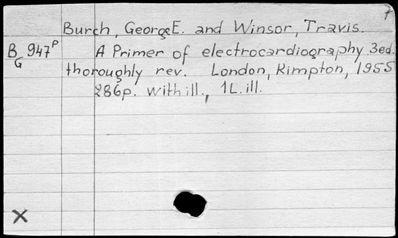 Burch, George E. and Winsor, Travis.
B 947ᴾ A Primer of electrocardiography 3ed.
G
thoroughly rev. London, Kimpton, 1955
286p. with ill., 1L. ill.
X